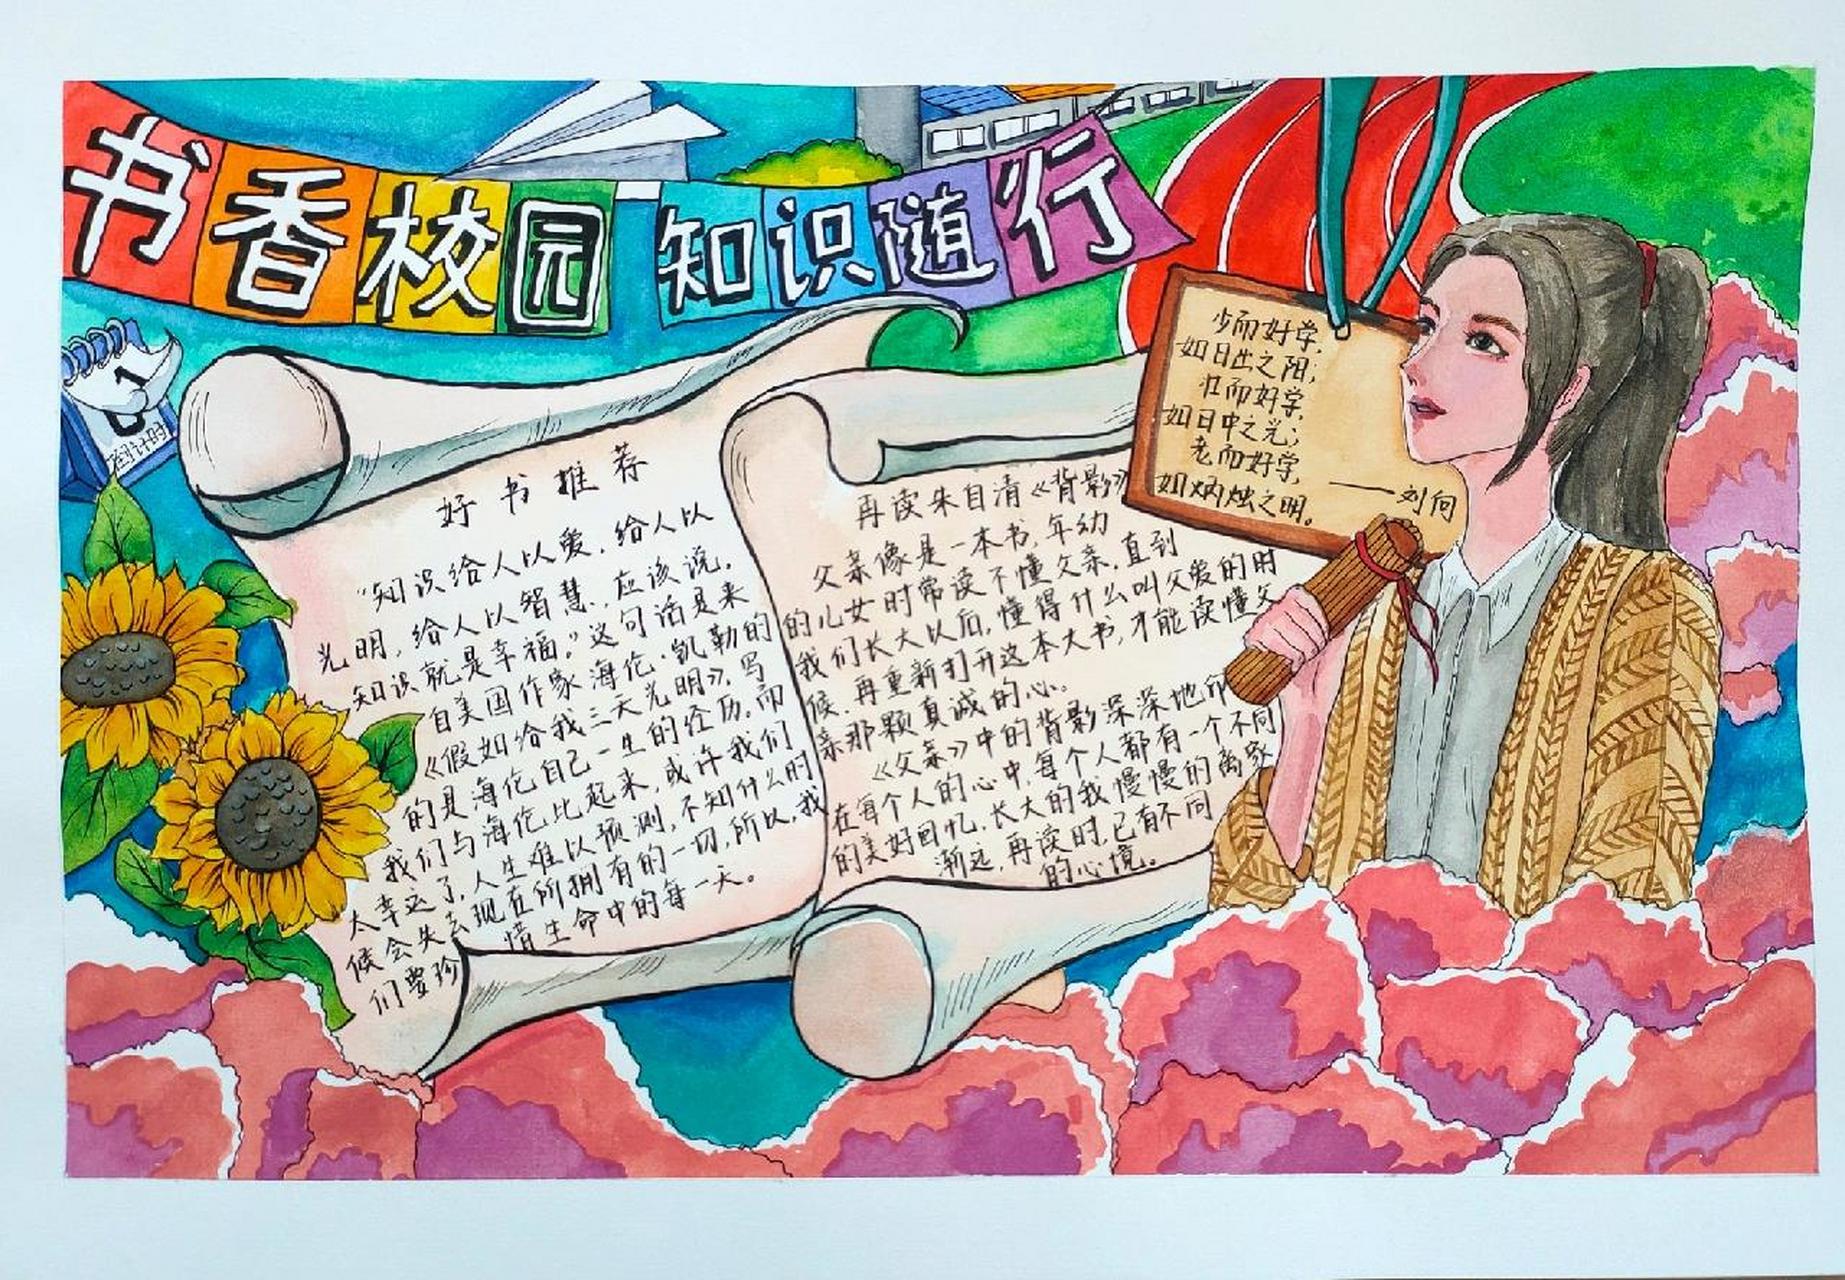 书香校园 知识随行
1
倒计时
好书推荐
“知识给人以爱,给人以
光明,给人以智慧,应该说,
知识就是幸福。”这句话是来
自美国作家海伦·凯勒的
《假如给我三天光明》,写
的是海伦自己一生的经历,而
我们与海伦比起来,或许我们
太幸运了,人生难以预测,不知什么时
候会失去现在所拥有的一切,所以,我
们要珍惜生命中的每一天。
再读朱自清《背影》
父亲像是一本书,年幼
的儿女时常读不懂父亲,直到
我们长大以后,懂得什么叫父爱的时
候,再重新打开这本大书,才能读懂父
亲那颗真诚的心。
《父亲》中的背影深深地
在每个人的心中,每个人都有一个不同
的美好回忆,长大的我慢慢的离家
渐远,再读时,已有不同
的心境。
少而好学,
如日出之阳;
壮而好学,
如日中之光;
老而好学,
如炳烛之明。
——刘向